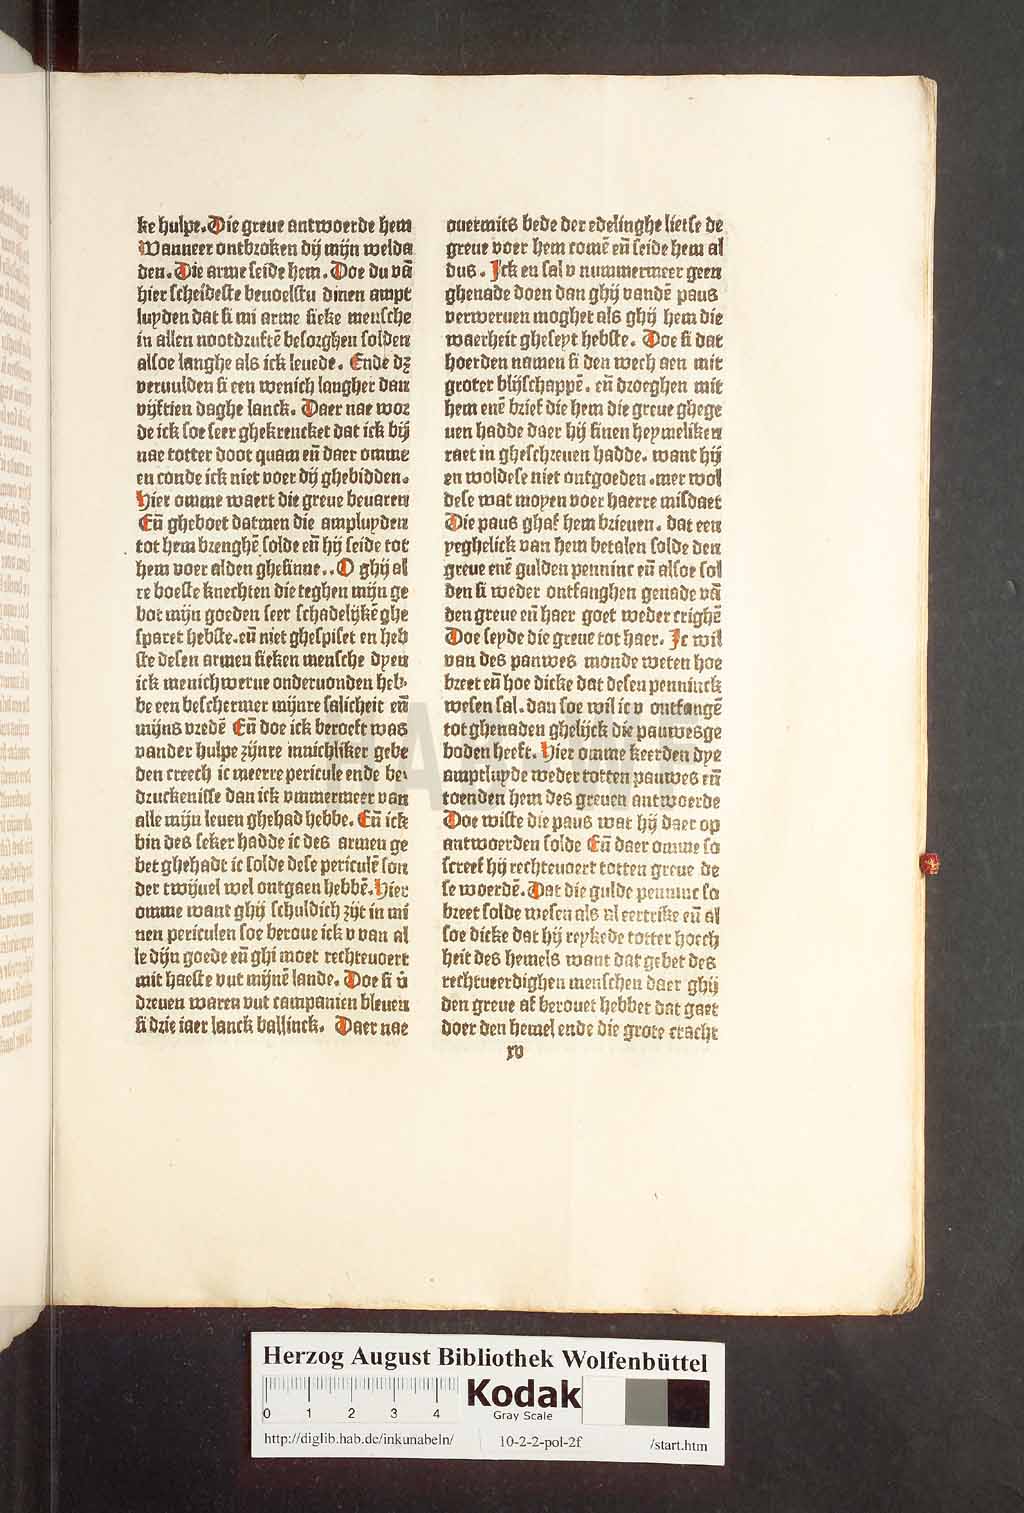 ke hulpe. Die greue antwoerde hem
Wanneer ontbroken dij mijn welda
den. Die arme seide hem. Doe du vā
hier scheideste beuoelstu dinen ampt
luyden dat si mi arme sieke mensche
in allen nootdruftē besorghen solden
alsoe langhe als ick leuede. Ende dz
veruulden si een wenich langher dan
vijftien daghe lanck. Daer nae wor
de ick soe seer ghekrencket dat ick bij
nae totter doot quam eñ daer omme
en conde ick niet voer dij ghebidden.
Hier omme waert die greue beuaren
Eñ gheboet datmen die ampluyden
tot hem brenghē solde eñ hij seide tot
hem voer alden ghesinne.. O ghij al
re boeste knechten die teghen mijn ge
bot mijn goeden seer schadelijkē ghe
sparet hebste. eñ niet ghespiset en heb
ste desen armen sieken mensche dyen
ick menichwerue onderuonden heb-
be een beschermer mijnre salicheit eñ
mijns vredē Eñ doe ick beroeft was
vander hulpe zijnre innichliker gebe
den creech ic meerre pericule ende be-
druckenisse dan ick vmmermeer van
alle mijn leuen ghehad hebbe. Eñ ick
bin des seker hadde ic des armen ge
bet ghehadt ic solde dese periculē son
der twijuel wel ontgaen hebbē. Hier
omme want ghij schuldich zijt in mi
nen periculen soe beroue ick v van al
le dijn goede eñ ghi moet rechteuoert
mit haeste vut mijnē lande. Doe si v̄
dreuen waren vut campanien bleuen
si drie iaer lanck ballinck. Daer nae
ouermits bede der edelinghe lietse de
greue voer hem comē eñ seide hem al
dus. Ick en sal v nummermeer geen
ghenade doen dan ghij vandē paus
verweruen moghet als ghij hem die
waerheit gheseyt hebste. Doe si dat
hoerden namen si den wech aen mit
groter blijschappē. eñ droeghen mit
hem enē brief die hem die greue ghege
uen hadde daer hij sinen heymeliken
raet in gheschreuen hadde. want hij
en woldese niet ontgoeden. mer wol
dese wat moyen voer haerre misdaet
Die paus ghaf hem brieuen. dat een
yeghelick van hem betalen solde den
greue enē gulden penninc eñ alsoe sol
den si weder ontfanghen genade vā
den greue eñ haer goet weder crighē
Doe seyde die greue tot haer. Ic wil
van des pauwes monde weten hoe
breet eñ hoe dicke dat desen penninck
wesen sal. dan soe wil ic v ontfangē
tot ghenaden ghelijck die pauwes ge
boden heeft. Hier omme keerden dye
amptluyde weder totten pauwes eñ
toenden hem des greuen antwoerde
Doe wiste die paus wat hij daer op
antwoerden solde Eñ daer omme so
screef hij rechteuoert totten greue de
se woerdē. Dat die gulde penninc so
breet solde wesen als al eertrike eñ al
soe dicke dat hij reykede totter hoech
heit des hemels want dat gebet des
rechtueerdighen menschen daer ghij
den greue af berouet hebbet dat gaet
doer den hemel ende die grote cracht
xv
Herzog August Bibliothek Wolfenbüttel
0 1 2 3 4
Kodak
Gray Scale
http://diglib.hab.de/inkunabeln/ 10-2-2-pol-2f /start.htm